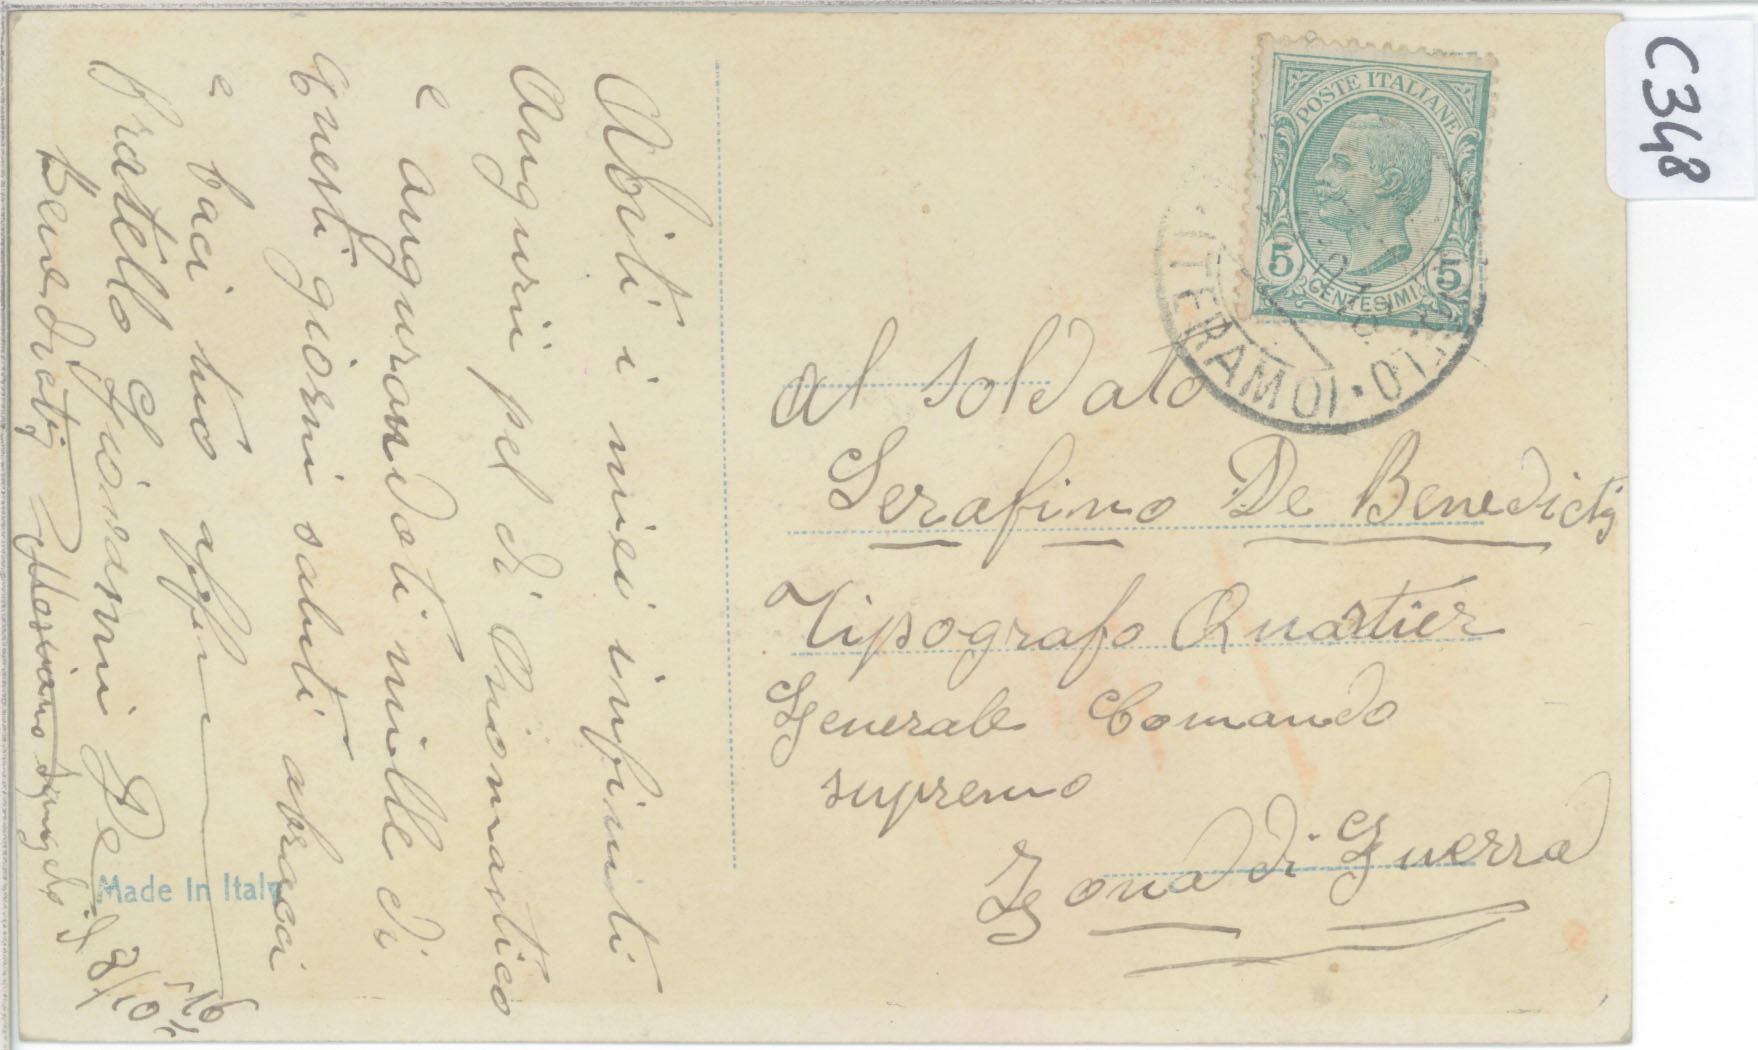 Abiti i miei infiniti
Auguri pel di Onomastico
e augurandoti mille di
questi giorni saluti abracci
e baci tuo aff
fratello Giovanni De
Benedictis
il 8/10 '16
Made in Italy
POSTE ITALIANE
5 CENTESIMI 5
(TERAMO)
al soldato
Serafino De Benedictis
Tipografo Quartier
Generale Comando
supremo
Zona di Guerra
C348